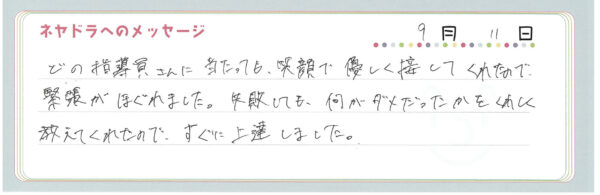 ネヤドラへのメッセージ
9月 11日
どの指導員さんに当たっても、笑顔で優しく接してくれたので、
緊張がほぐれました。失敗しても、何がダメだったかをくわしく
教えてくれたので、すぐに上達しました。